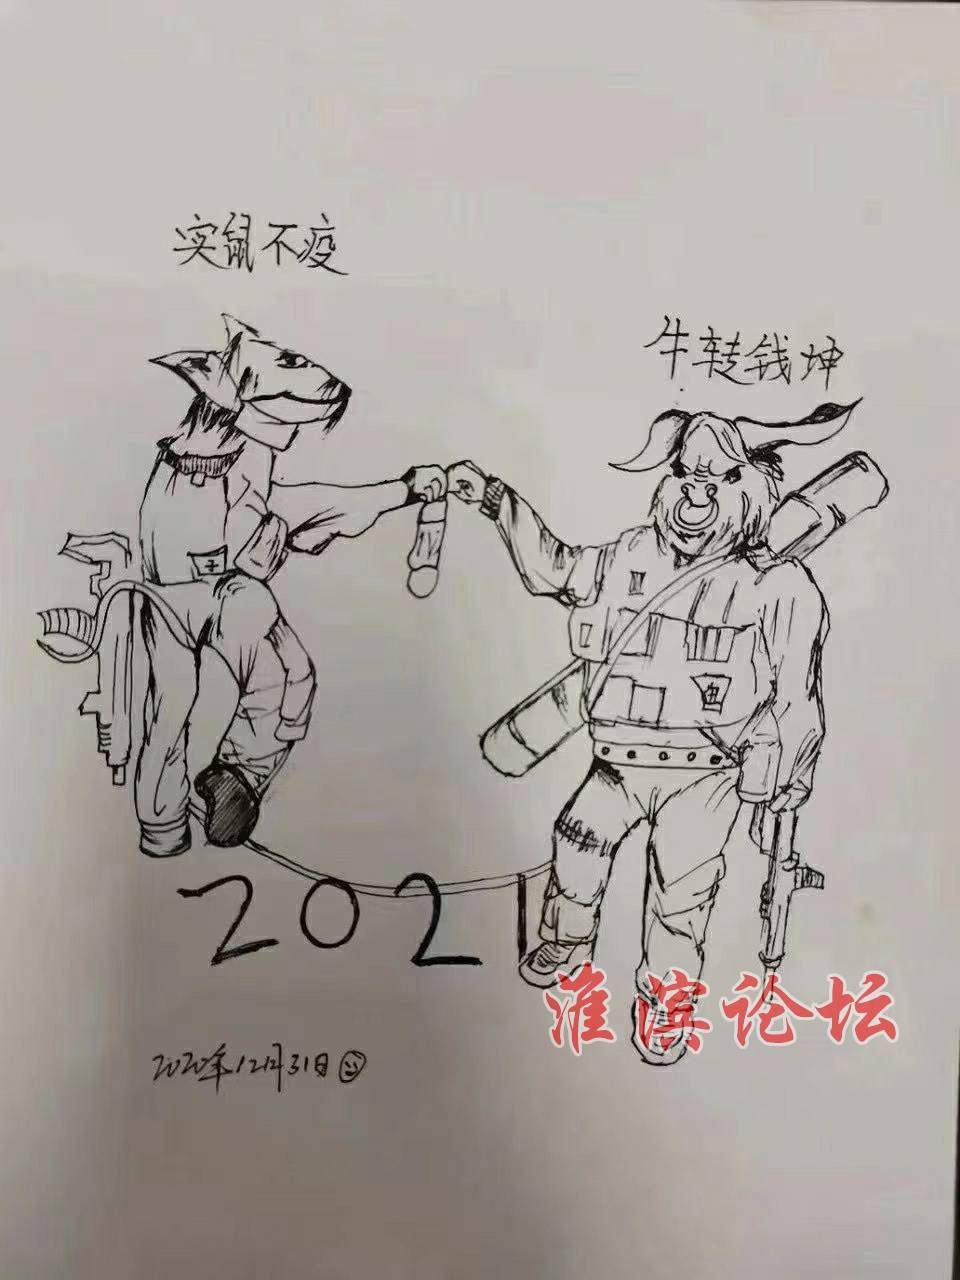 实鼠不疫
牛转钱坤
子
丑
2021
2020年12月31日
淮滨论坛